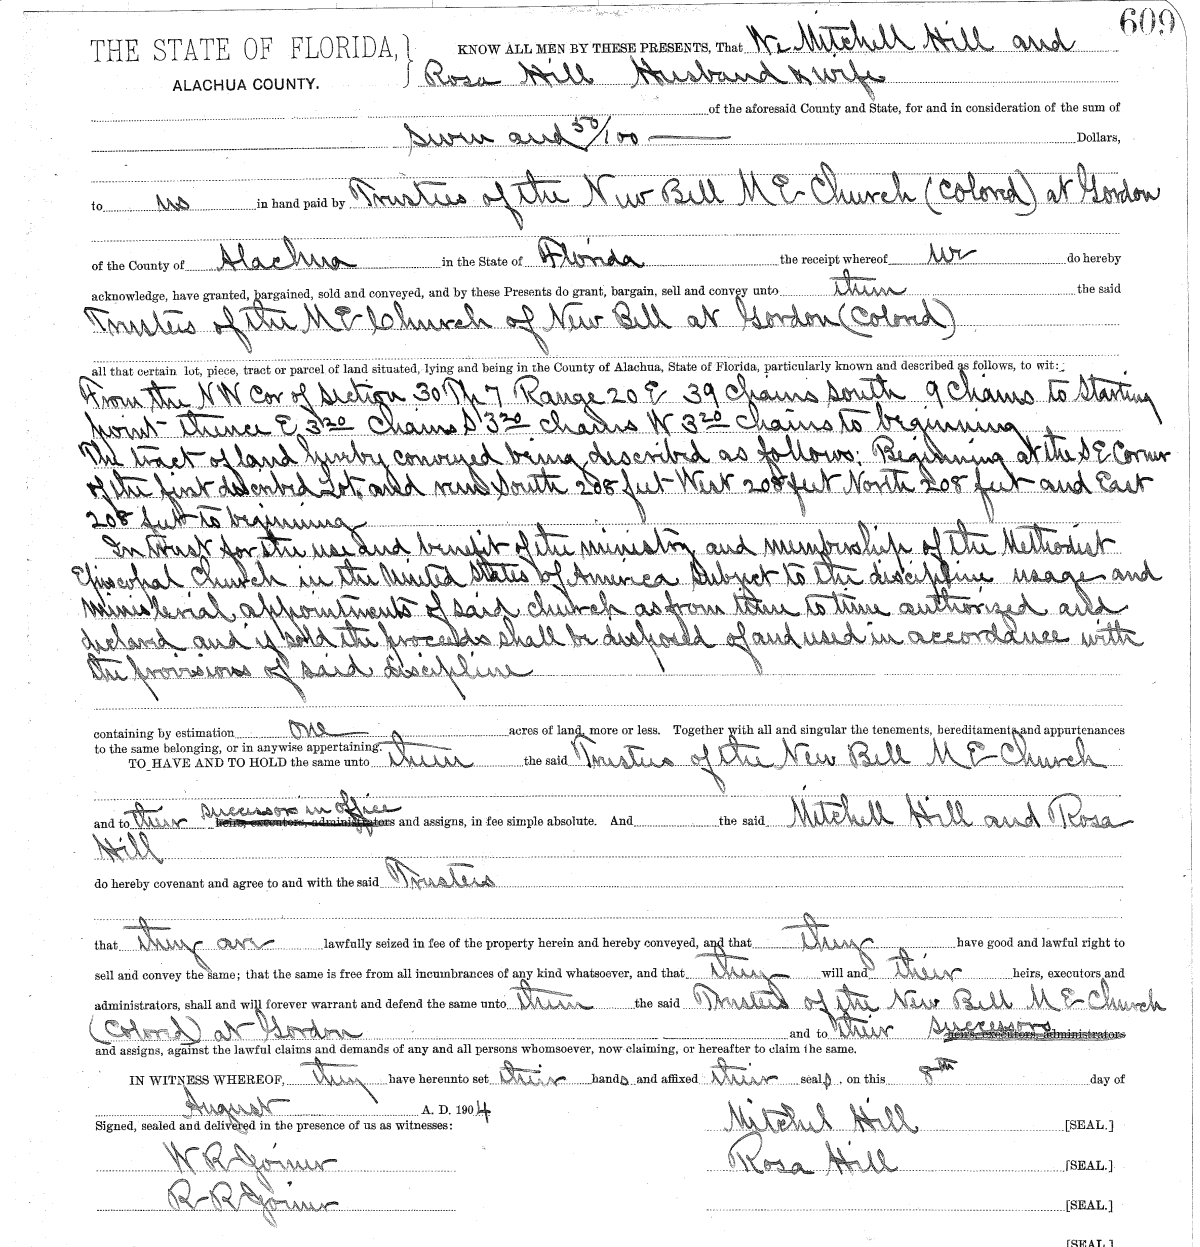 609
THE STATE OF FLORIDA,
ALACHUA COUNTY.
KNOW ALL MEN BY THESE PRESENTS, That We Mitchell Hill and
Rosa Hill Husband & wife
of the aforesaid County and State, for and in consideration of the sum of
Seven and 50/100 Dollars,
to us in hand paid by Trustees of the New Bell M E Church (Colored) at Gordon
of the County of Alachua in the State of Florida the receipt whereof we do hereby
acknowledge, have granted, bargained, sold and conveyed, and by these Presents do grant, bargain, sell and convey unto them the said
Trustees of the M E Church of New Bell at Gordon (Colored)
all that certain lot, piece, tract or parcel of land situated, lying and being in the County of Alachua, State of Florida, particularly known and described as follows, to wit:
From the NW Cor of Section 30 Tp 7 Range 20 E 39 Chains South 9 Chains to Starting
point thence E 3 20 Chains S 3 20 chains W 3 20 chains to beginning
The tract of land hereby conveyed being described as follows: Beginning at the S E Corner
of the first described Lot, and run South 208 feet West 208 feet North 208 feet and East
208 feet to beginning
In trust for the use and benefit of the ministry and membership of the Methodist
Episcopal Church in the United States of America Subject to the discipline usage and
ministerial appointments of said church as from time to time authorized and
declared and if sold the proceeds shall be disposed of and used in accordance with
the provisions of said discipline
containing by estimation one acres of land, more or less. Together with all and singular the tenements, hereditaments and appurtenances
to the same belonging, or in anywise appertaining.
TO HAVE AND TO HOLD the same unto them the said Trustees of the New Bell M E Church
and to their successors in office heirs, executors, administrators and assigns, in fee simple absolute. And the said Mitchell Hill and Rosa
Hill
do hereby covenant and agree to and with the said Trustees
that they are lawfully seized in fee of the property herein and hereby conveyed, and that they have good and lawful right to
sell and convey the same; that the same is free from all incumbrances of any kind whatsoever, and that they will and their heirs, executors and
administrators, shall and will forever warrant and defend the same unto them the said Trustees of the New Bell M E Church
(Colored) at Gordon and to their successors heirs, executors, administrators
and assigns, against the lawful claims and demands of any and all persons whomsoever, now claiming, or hereafter to claim the same.
IN WITNESS WHEREOF, they have hereunto set their hands and affixed their seals, on this 8th day of
August A. D. 1904
Signed, sealed and delivered in the presence of us as witnesses:
Mitchel Hill [SEAL.]
W R Joiner
Rosa Hill [SEAL.]
R R Joiner
[SEAL.]
[SEAL.]